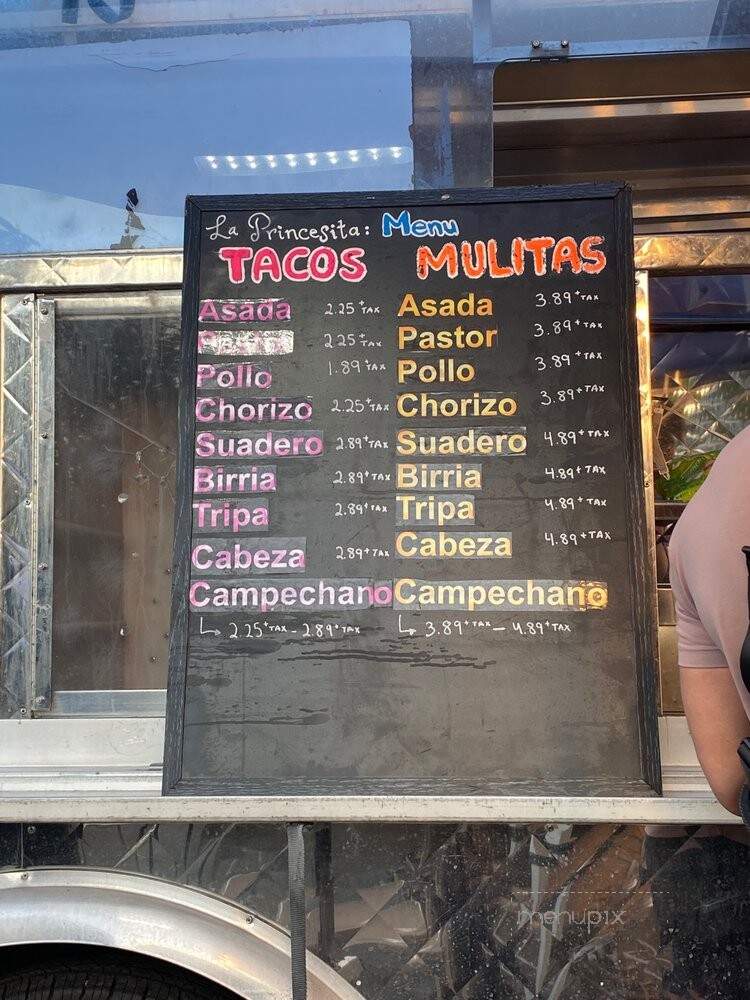 La Princesita: Menu
TACOS
Asada 2.25+TAX
Pastor 2.25+TAX
Pollo 1.89+TAX
Chorizo 2.25+TAX
Suadero 2.89+TAX
Birria 2.89+TAX
Tripa 2.89+TAX
Cabeza 2.89+TAX
Campechano
↳ 2.25+TAX - 2.89+TAX
MULITAS
Asada 3.89+TAX
Pastor 3.89+TAX
Pollo 3.89+TAX
Chorizo 3.89+TAX
Suadero 4.89+TAX
Birria 4.89+TAX
Tripa 4.89+TAX
Cabeza 4.89+TAX
Campechano
↳ 3.89+TAX - 4.89+TAX
menupix